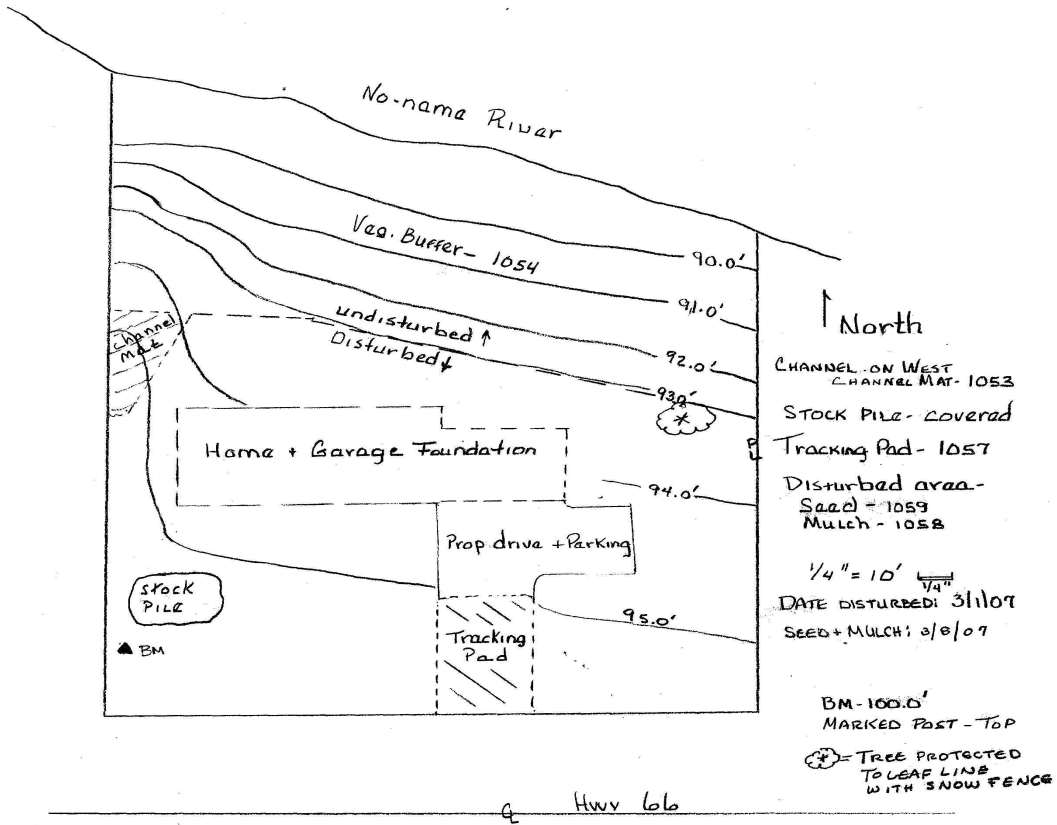 No-name River
Veg. Buffer- 1054
90.0'
91.0'
92.0'
93.0'
undisturbed ↑
Disturbed ↓
channel
mat
Home + Garage Foundation
94.0'
Prop. drive + Parking
stock
PILE
Tracking
Pad
95.0'
▲ BM
PL
Hwy 66
CL
North
CHANNEL ON WEST
CHANNEL MAT- 1053
STOCK PILE- covered
Tracking Pad- 1057
Disturbed area-
Seed - 1059
Mulch - 1058
1/4" = 10' 1/4"
DATE DISTURBED: 3/1/07
SEED + MULCH: 3/8/07
BM-100.0'
MARKED POST - TOP
= TREE PROTECTED
TO LEAF LINE
WITH SNOW FENCE